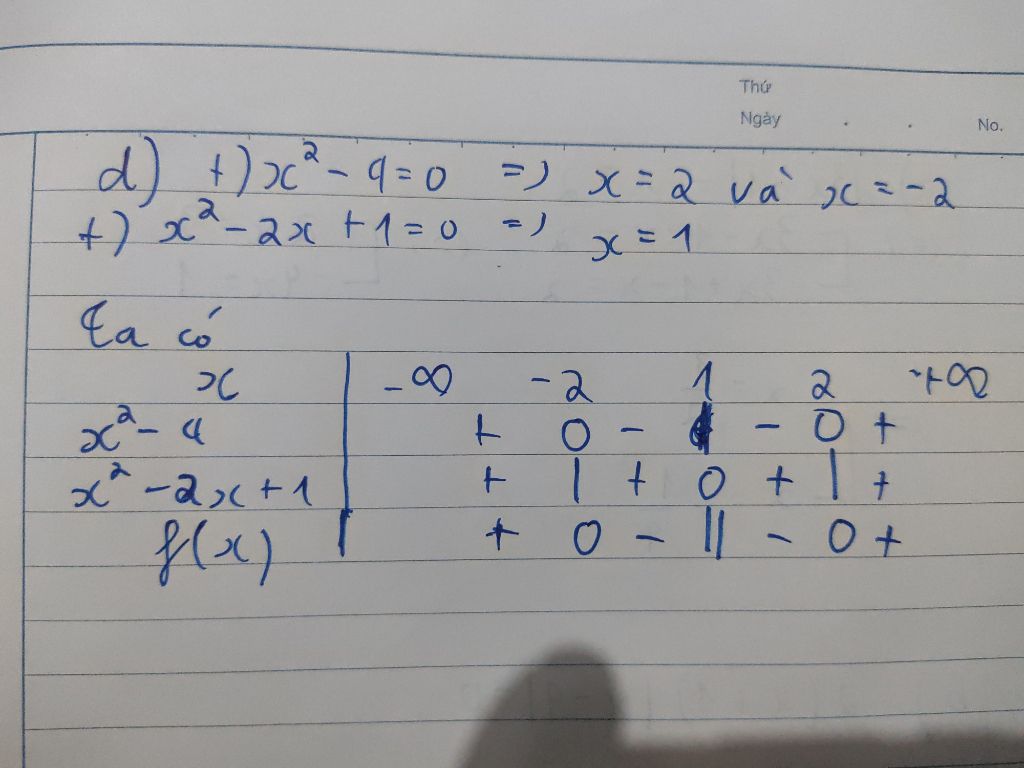 Thứ
Ngày . . No.
d) +) x² - 4 = 0 => x = 2 và x = -2
+) x² - 2x + 1 = 0 => x = 1
Ta có
x | -∞ -2 1 2 +∞
x² - 4 | + 0 - | - 0 +
x² - 2x + 1 | + | + 0 + | +
f(x) | + 0 - || - 0 +